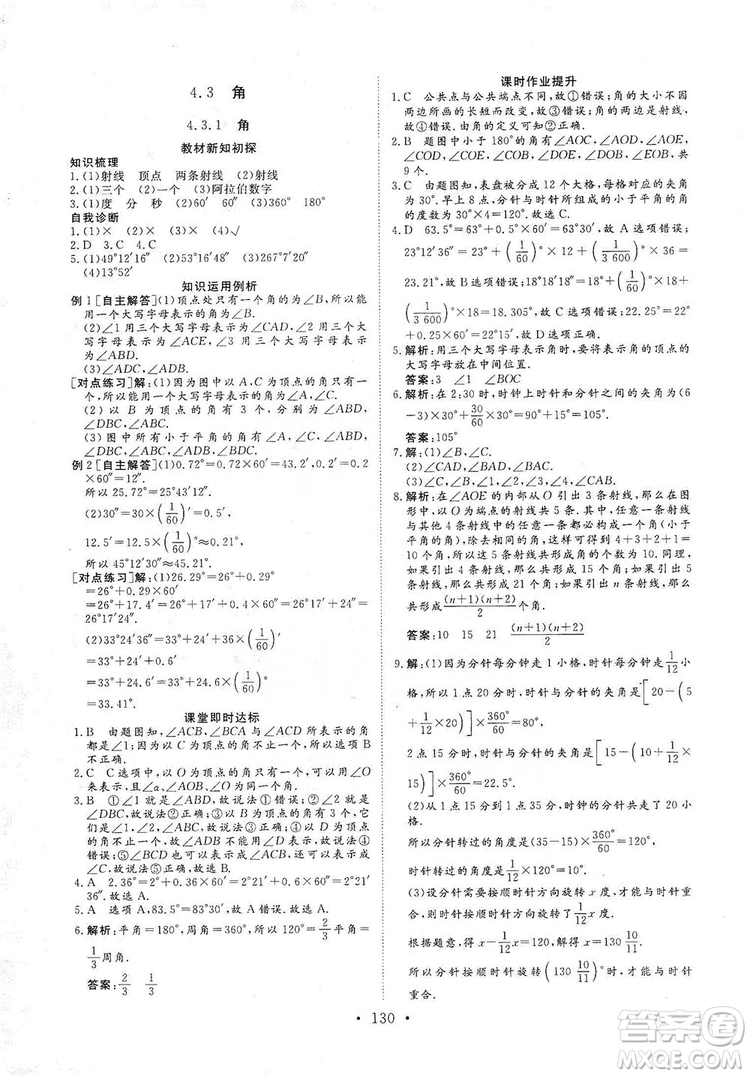 4.3 角
4.3.1 角
教材新知初探
知识梳理
1.(1)射线 顶点 两条射线 (2)射线
2.(1)三个 (2)一个 (3)阿拉伯数字
3.(1)度 分 秒 (2)60′ 60″ (3)360° 180°
自我诊断
1.(1)× (2)× (3)× (4)√
2.D 3.C 4.C
5.(1)49°12′16″ (2)53°16′48″ (3)267°7′12″
(4)13°52′
知识运用例析
例1[自主解答](1)顶点处只有一个角的为∠B,所以能
用一个大写字母表示的角为∠B.
(2)∠1用三个大写字母表示为∠ABC,∠2用三个大
写字母表示为∠ACE,∠3用三个大写字母表示
为∠ABD.
(3)∠ADC,∠ADB.
[对点练习]解:(1)因为以A,C为顶点的角只有一个,
所以能用一个大写字母表示的角为∠A,∠C.
(2)以B为顶点的角有3个,分别为∠ABD,
∠DBC,∠ABC.
(3)图中所有小于平角的角为∠A,∠C,∠ABD,
∠DBC,∠ABC,∠ADB,∠BDC.
例2[自主解答](1)0.72°=0.72×60′=43.2′,0.2′=0.2
×60″=12″.
所以25.72°=25°43′12″.
(2)30″=30×(1/60)′=0.5′,
12.5′=12.5×(1/60)°≈0.21°,
所以45°12′30″≈45.21°.
[对点练习]解:(1)26.29°=26°+0.29°
=26°+0.29×60′
=26°+17.4′=26°+17′+0.4×60″
=26°+17′+24″=26°17′24″.
(2)33°24′36″=33°+24′+36×(1/60)′
=33°+24′+0.6′=33°+24.6′=33°+24.6×(1/60)°
=33.41°.
课堂即时达标
1.B 由题图知,∠ACB,∠BCA与∠ACD所表示的角
都是∠1;以C为顶点的角不止一个,所以选项B
不正确.
2.C C选项中,以O为顶点的角只有一个,可以用∠O
来表示,A,B,D以O为顶点的角不止一个.故选C.
3.B ①∠1就是∠ABD,故说法①错误;②∠2就是
∠DBC,故说法②正确;③以B为顶点的角有3个,它
们是∠1,∠2,∠ABC,故说法③错误;④以D为顶点的
角不止一个,故∠ADB不能用∠D表示,说法④
错误;⑤∠BCD可以表示成∠ACB,也可以表示成
∠C,故说法⑤正确.故选B.
4.A 2.36°=2°+0.36×60′=2°+21′+0.6×60″=2°
+21′+36″=2°21′36″.故选A.
5.A 因为,83.5°=83°+0.5×60′=83°30′,所以83.5°
<83°50′,故选A.
6.解析:平角=180°,周角=360°,所以120°=2/3平角=
1/3周角.
答案:2/3 1/3
课时作业提升
1.C 公共点与公共端点不同,故①错误;角的大小不因
两边画的长短而改变,故③错误;角的两边是射线,
故④错误.由角的定义可知②正确.故选C.
2.B 题图中小于180°的角有∠AOC,∠AOD,∠AOE,
∠COD,∠COE,∠COB,∠DOE,∠DOB,∠EOB,共
9个.
3.C 由题图知,表盘被分成12个大格,每格对应的夹角
为30°.早上8点时分针与时针所组成的小于平角的角
的度数为30°×4=120°.故选C.
4.D 63.5°=63°+0.5×60′=63°30′,故A选项错误;
23°12′36″=23°+(1/60)°×12+(1/3 600)°×36=
23.21°,故B选项错误;18°18′18″=18°+(1/60)°×18+
(1/3 600)°×18=18.305°,故C选项错误;22.25°=22°+
0.25×60′=22°15′,故D选项正确.
5.解析:用三个大写字母表示角时,要将表示角的顶点的
大写字母放在中间位置.
答案:3 ∠1 ∠BOC
6.解析:在2:30时,时钟上时针和分针之间的夹角为(6
-3)×30°+30/60×30°=90°+15°=105°.
答案:105°
7.解:(1)∠B,∠C.
(2)∠CAD,∠BAD,∠BAC.
(3)∠C,∠B,∠1,∠2,∠3,∠4.
8.解析:在∠AOE的内部从O引出3条射线,那么在图
形中,以O为端点的射线共5条.其中,任意一条射线
与其他4条射线中的任意一条都可构成一个角(小于
平角的角),除去同一个角,则共有角4+3+2+1=
10个.所以这5条射线共形成角的个数为10.同理,
如果引出4条射线,那么共形成15个角;如果引出5
条射线,那么共形成21个角;如果引出n条射线,那么
共形成(n+1)(n+2)/2个角.
答案:10 15 21 (n+1)(n+2)/2
9.解:(1)因为分针每走1小格,时针走1/12小格,所以1
点20分时,时针与分针的夹角是[20-(5+
1/12×20)]×360°/60=80°.
2点15分时,时针与分针的夹角是[15-(10+1/12×
15)]×360°/60=22.5°.
(2)从1点15分到1点35分,时钟的分针共走了20小格.
所以分针转过的角度是(35-15)×360°/60=120°,
时针转过的角度是1/12×120°=10°.
(3)设分针需要按顺时针方向旋转x度,才能与时针重
合,则时针按顺时针方向旋转了1/12x度,
根据题意,得x-1/12x=120,解得x=130 10/11.
所以分针按顺时针旋转(130 10/11)°时,才能与时针
重合.
• 130 •
答案圈
MXQE.COM